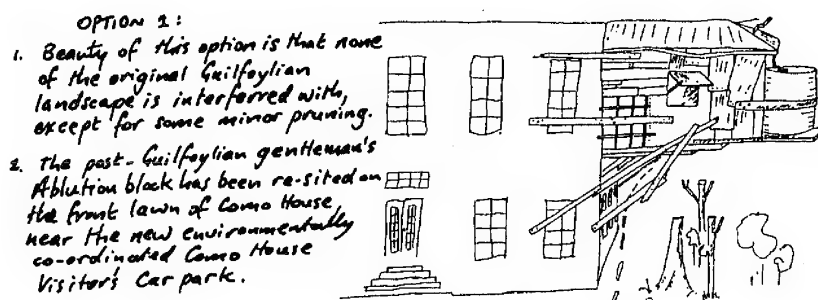 OPTION 1:
1. Beauty of this option is that none
of the original Guilfoylian
landscape is interferred with,
except for some minor pruning.
2. The post-Guilfoylian gentleman's
Ablution block has been re-sited on
the front lawn of Como House,
near the new environmentally
co-ordinated Como House
Visitor's Car park.